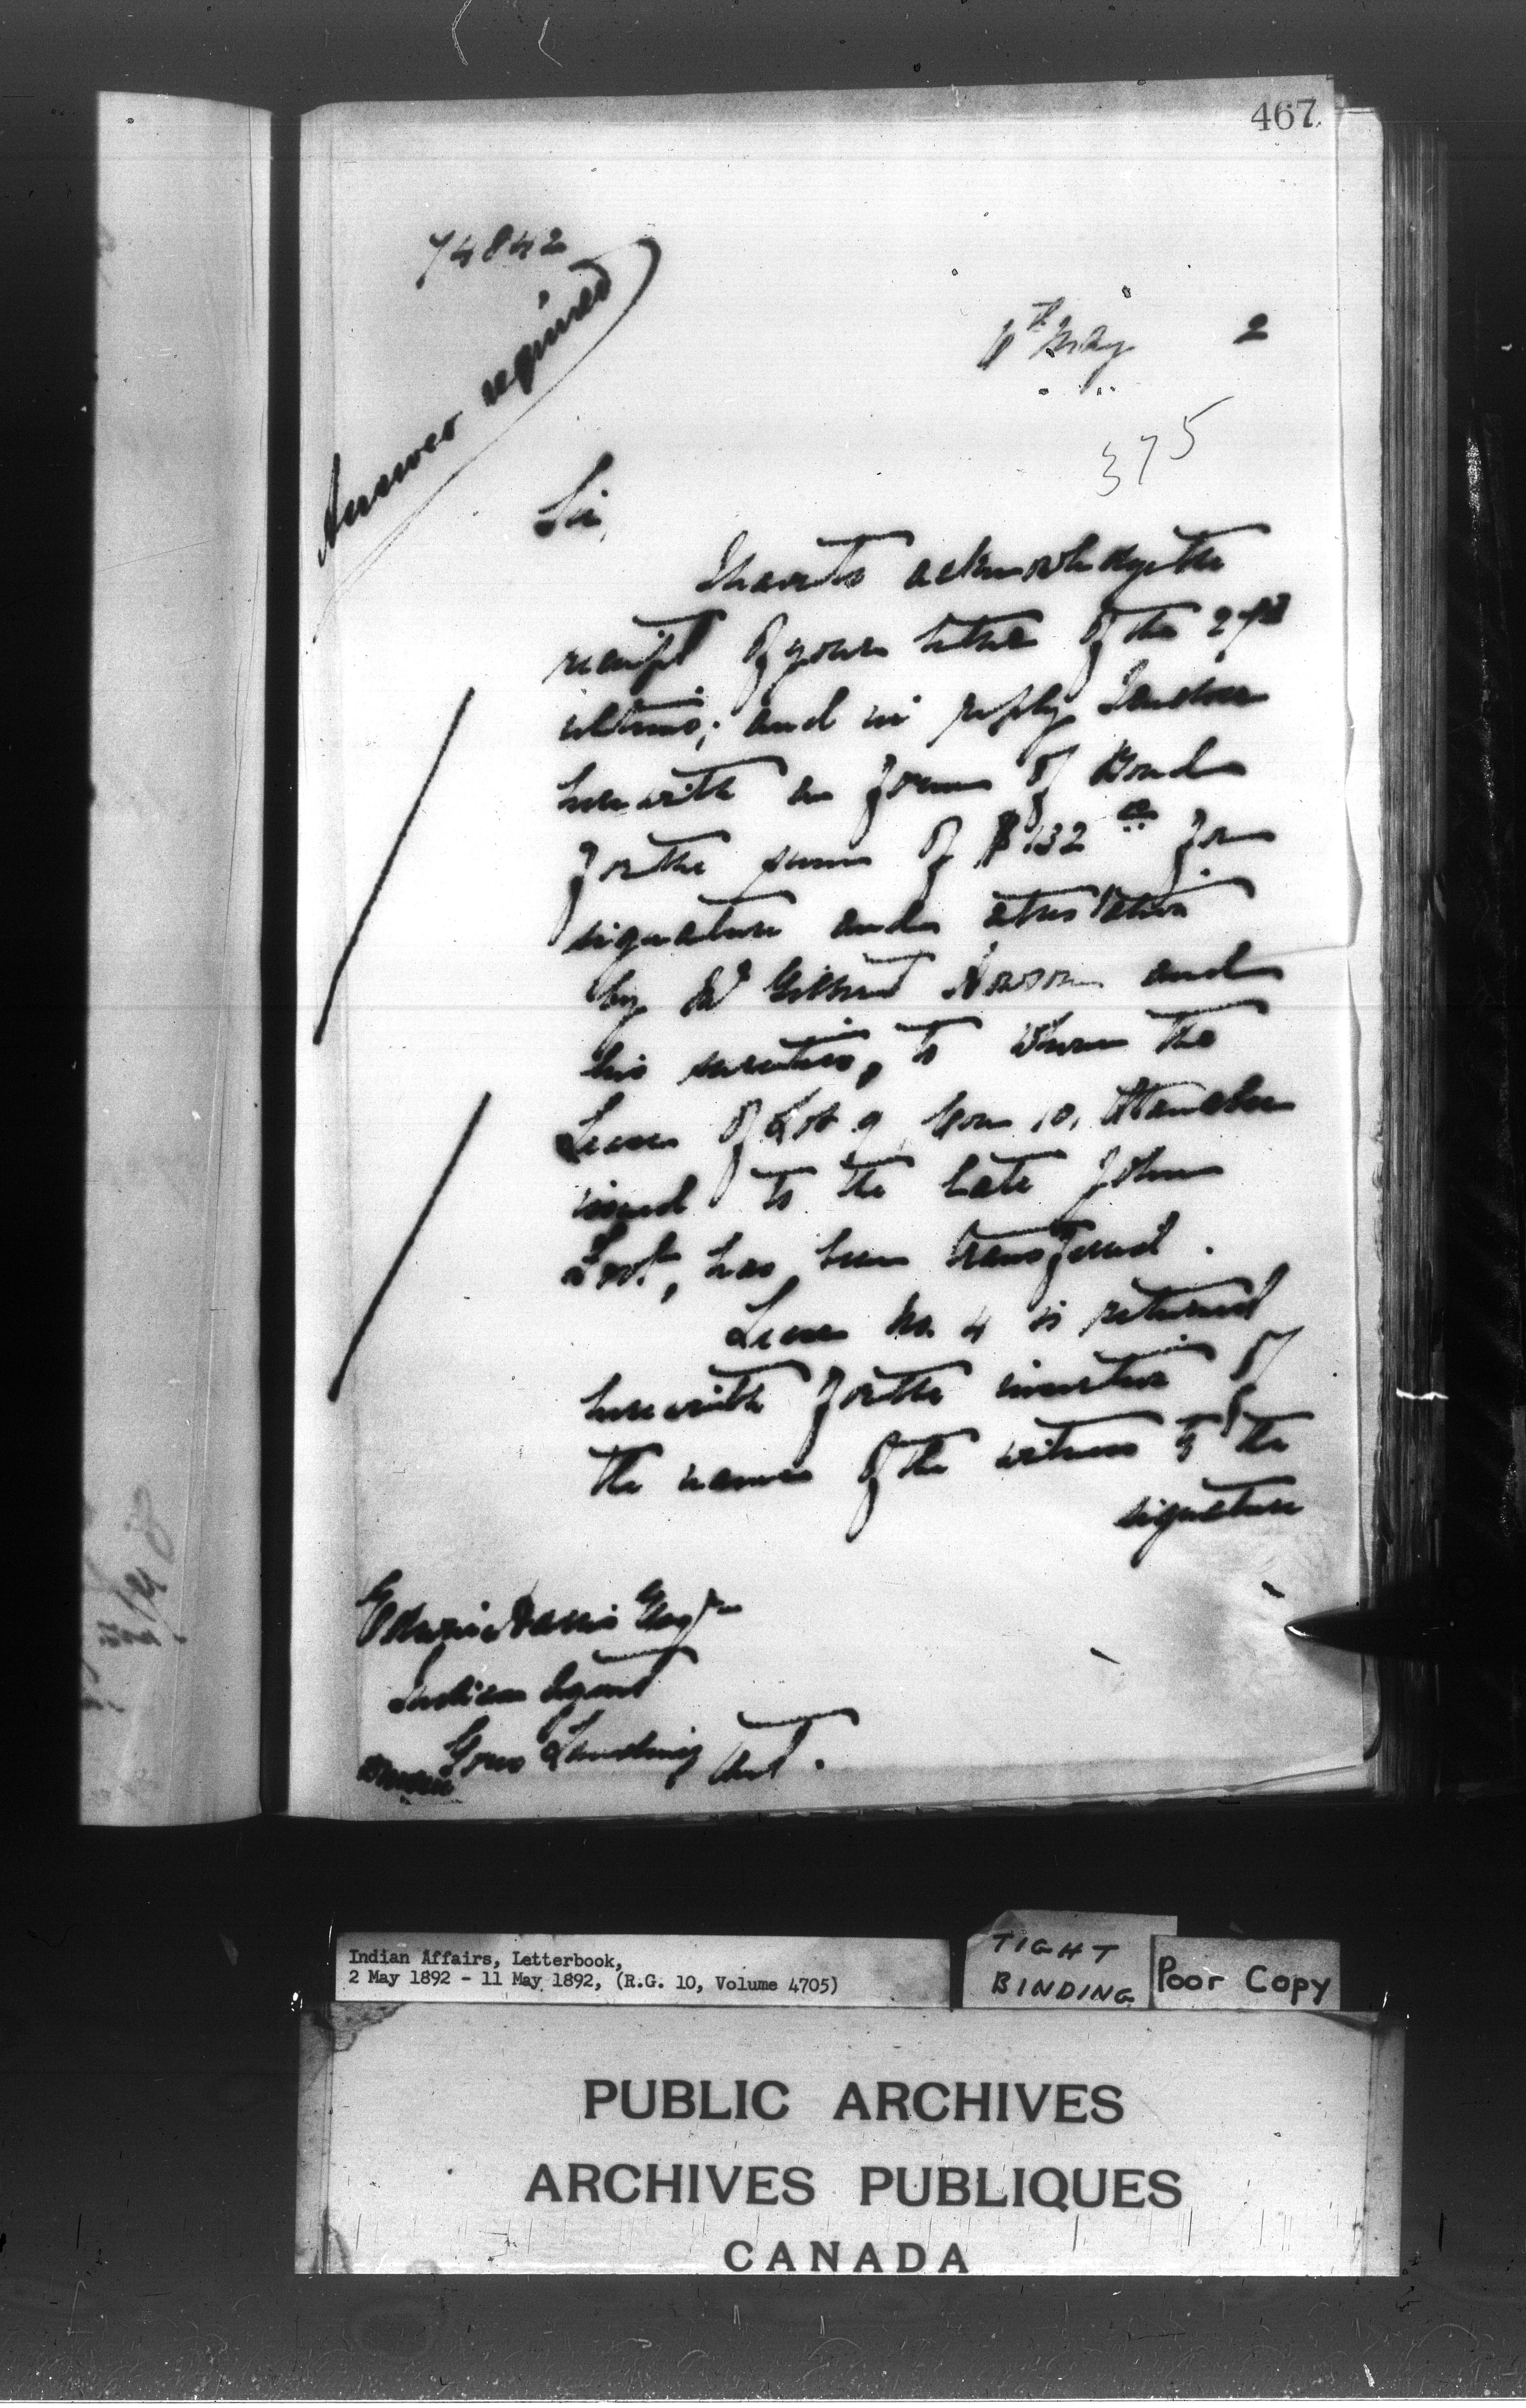 467
74842
Answer required
6th May 2
375
Sir,
I have to acknowledge the
receipt of your letter of the
ultimo; and in reply I enclose
herewith a form of Bond
for the sum of $132 00 for
signature and attestation
by Mr Gilbert and
his sureties, to whom the
Lease of Lot 9 Con 10,
issued to the late John
has been transferred.
Lease No. 4 is returned
herewith for the insertion of
the names of the witness to the
signature
Esqre
Indian Agent
Gores Landing Ont.
Indian Affairs, Letterbook,
2 May 1892 - 11 May 1892, (R.G. 10, Volume 4705)
TIGHT
BINDING
Poor Copy
PUBLIC ARCHIVES
ARCHIVES PUBLIQUES
CANADA